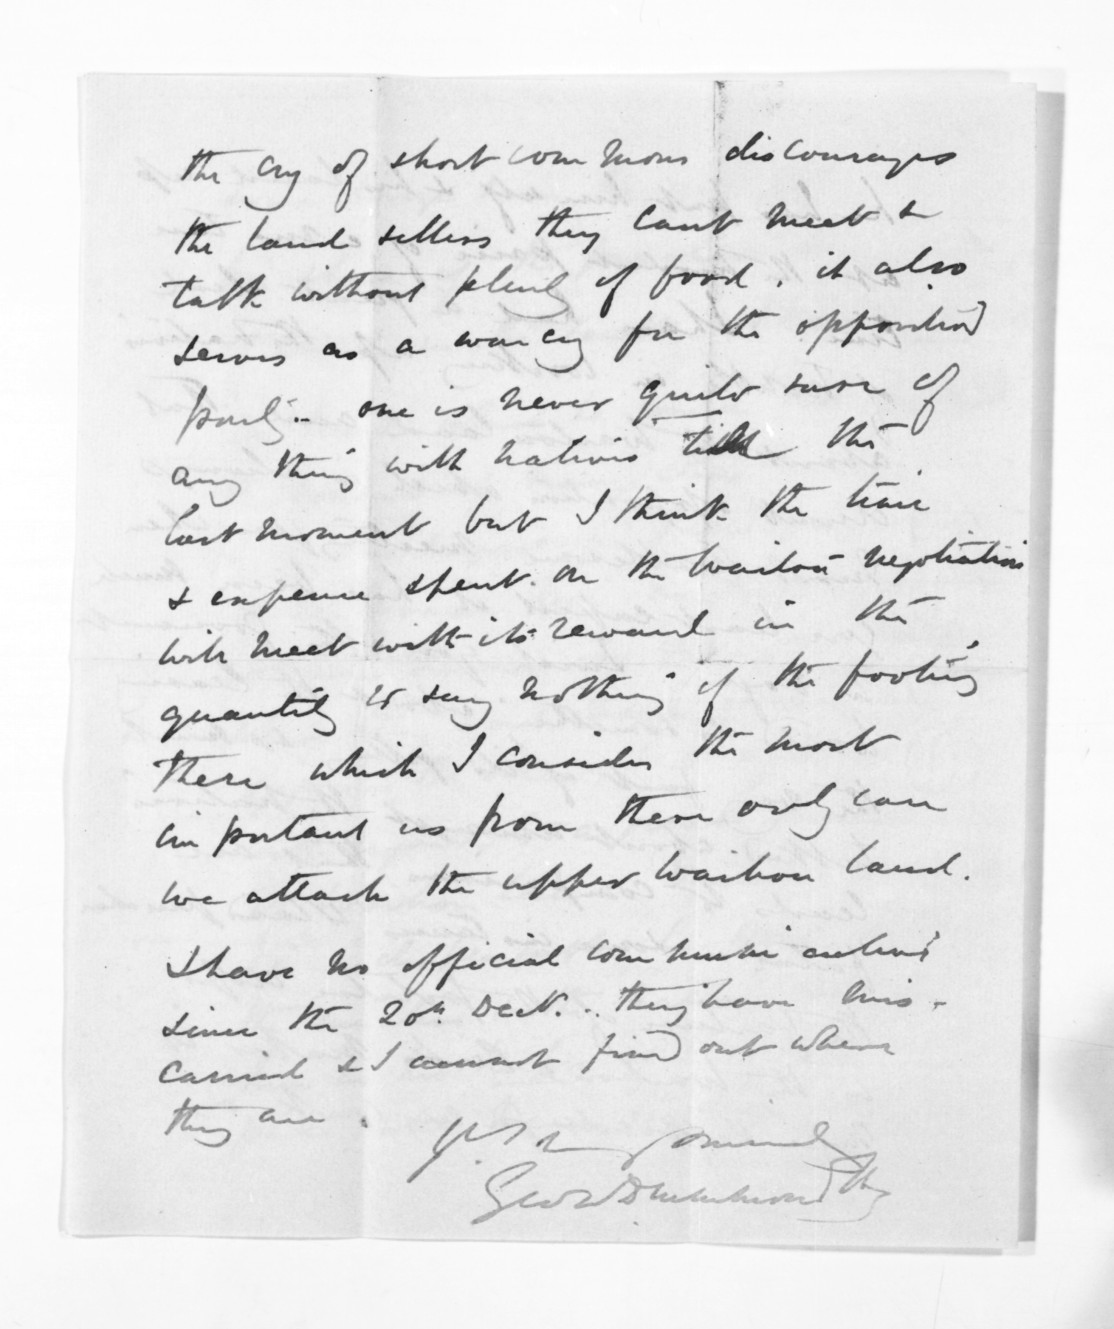 the cry of short commons discourages
the land sellers they cant meet &
talk without plenty of food, it also
serves as a war cry for the opposition
party.. one is never quite sure of
any thing with natives till the
last moment but I think the time
& expense spent on the Wairoa negotiations
will meet with its reward in the
quantity to say nothing of the footing
there which I consider the most
important as from there only can
we attack the upper Wairoa land.
I have no official communications
since the 20th Dect.. they have mis-
carried & I cannot find out where
they are.
Yrs
Geo